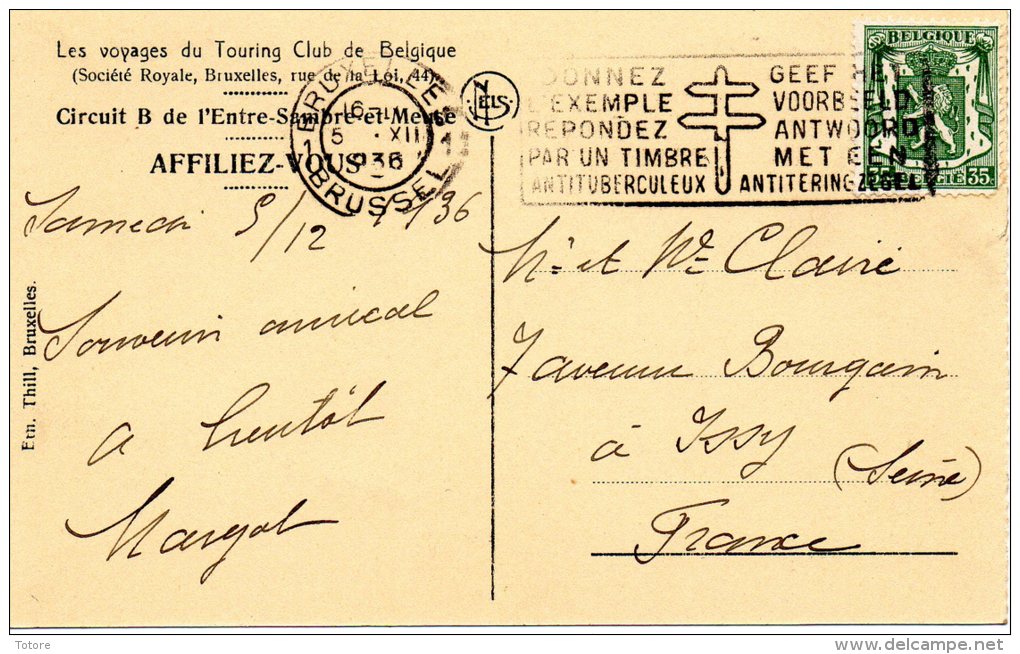 Les voyages du Touring Club de Belgique
(Société Royale, Bruxelles, rue de la Loi, 44)
Circuit B de l'Entre-Sambre-et-Meuse
AFFILIEZ-VOUS
BRUXELLES
5 XII
1936
1 BRUSSEL 1
NELS
DONNEZ
L'EXEMPLE
REPONDEZ
PAR UN TIMBRE
ANTITUBERCULEUX
GEEF HET
VOORBEELD
ANTWOORD
MET EEN
ANTITERINGZEGEL
BELGIQUE
35 BELGIE 35
Samedi 5/12 1936
Souvenir amical
a bientôt
Margot
Ern. Thill, Bruxelles.
Mr et Me Claire
7 avenue Bourgain
à Issy (Seine)
France
Totore
delcampe.net